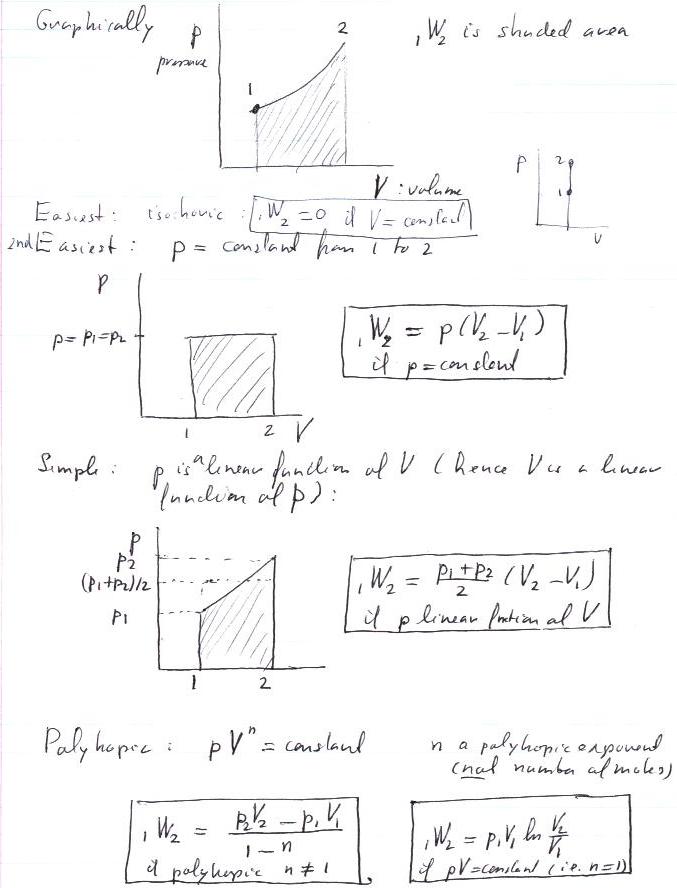 Graphically
p
pressure
1
2
₁W₂ is shaded area
V : volume
p
2
1
V
Easiest : isochoric : ₁W₂ = 0 if V = constant
2nd Easiest : p = constant from 1 to 2
p
p = p₁ = p₂
1 2 V
₁W₂ = p (V₂ - V₁)
if p = constant
Simple : p is a linear function of V (hence V is a linear
function of p) :
p
p₂
(p₁+p₂)/2
p₁
1 2
₁W₂ = (p₁ + p₂)/2 (V₂ - V₁)
if p linear function of V
Polytropic : pVⁿ = constant
n a polytropic exponent
(not number of moles)
₁W₂ = (p₂V₂ - p₁V₁)/(1 - n)
if polytropic n ≠ 1
₁W₂ = p₁V₁ ln V₂/V₁
if pV = constant (i.e. n=1)